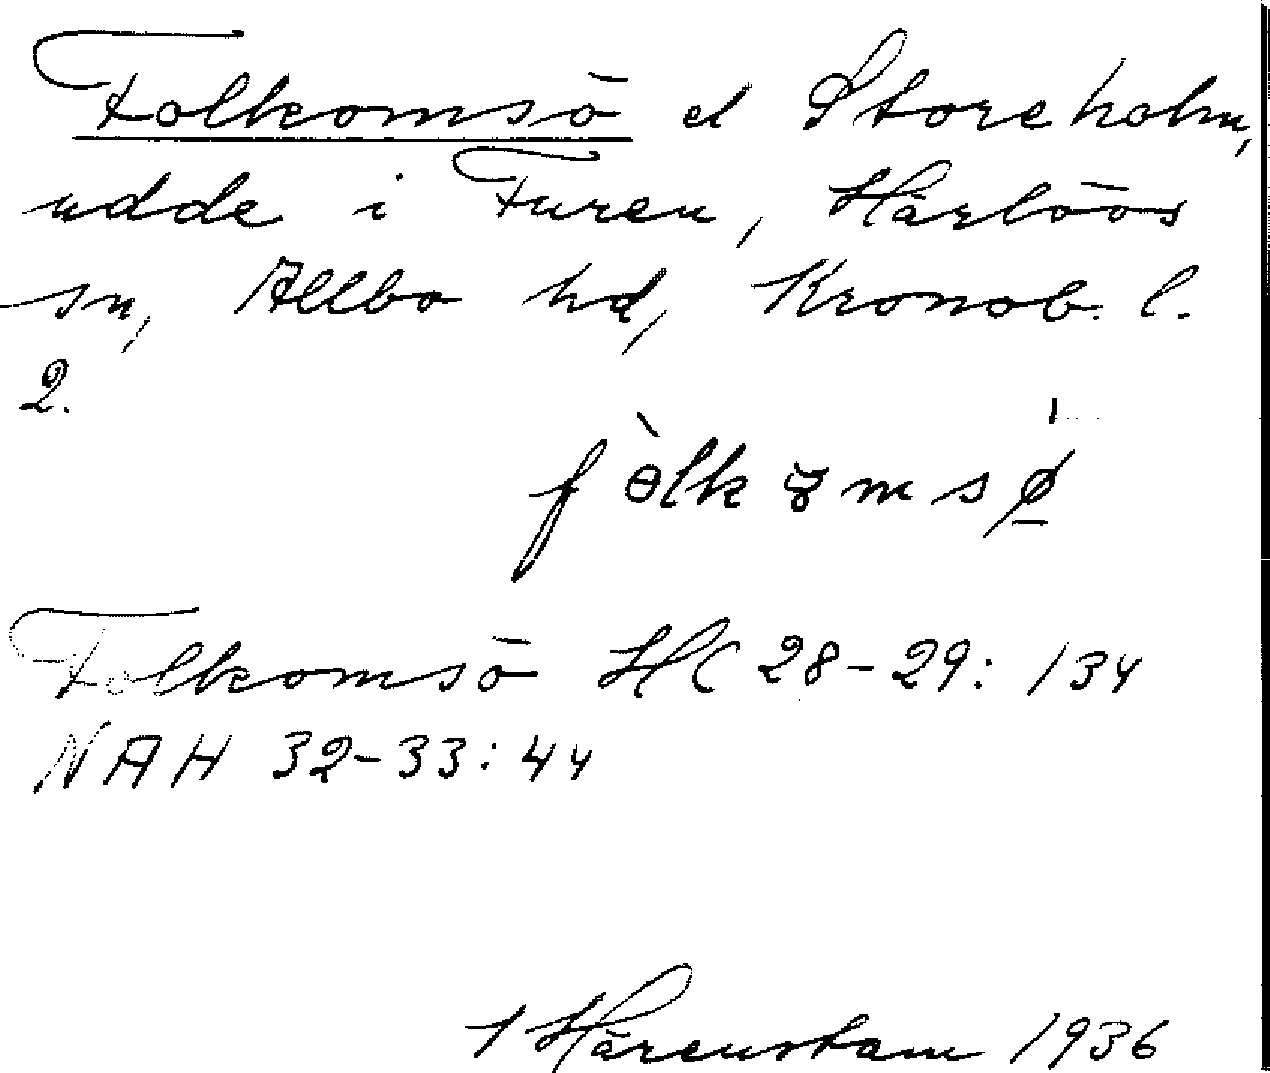 Folkomsö el Storeholm,
udde i Furen, Härlöös
sn, Allbo hd, Kronob. l.
2.
fɵ̀lkɤmsø̱
Folkomsö HC 28-29: 134
NAH 32-33: 44
I Härenstam 1936